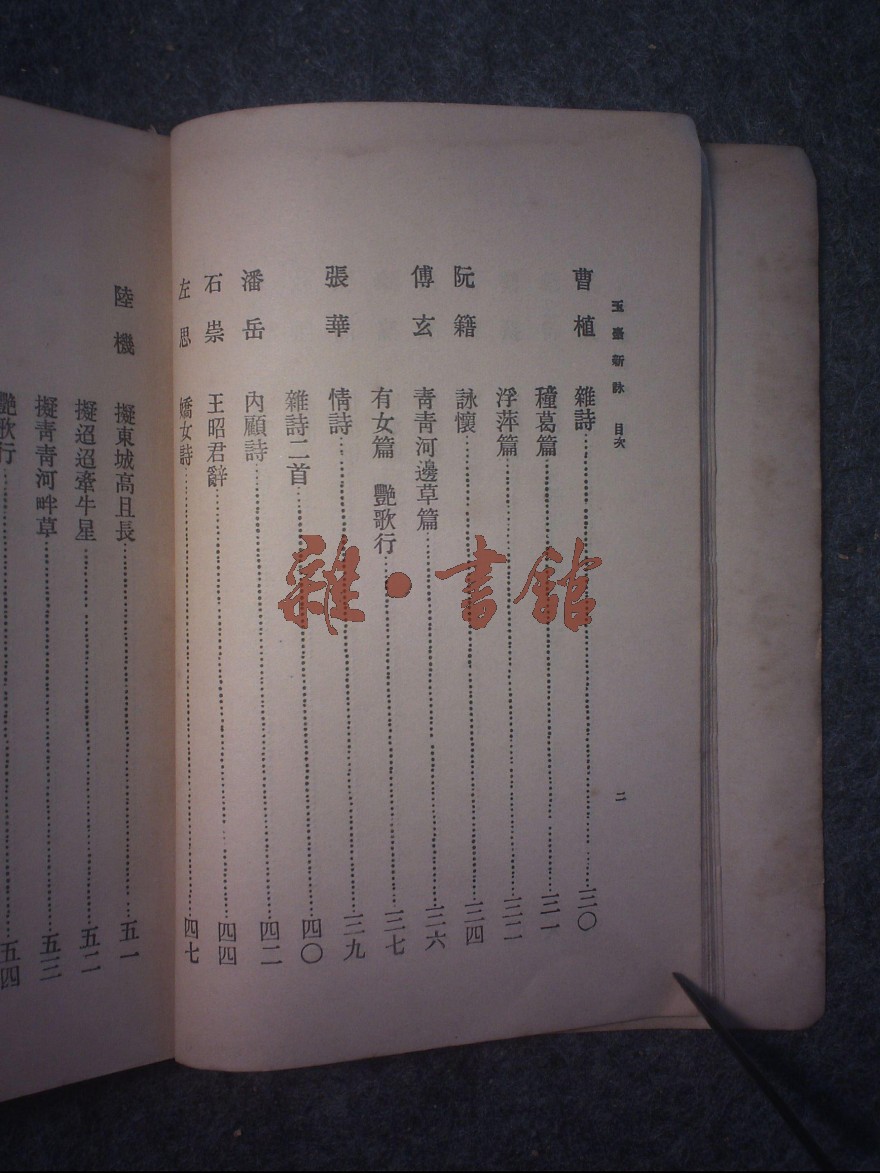 玉臺新詠 目次 二
曹植 雜詩 三〇
穜葛篇 三一
浮萍篇 三二
阮籍 詠懷 三四
傅玄 靑靑河邊草篇 三六
有女篇 艷歌行 三七
張華 情詩 三九
雜詩二首 四〇
潘岳 內顧詩 四二
石崇 王昭君辭 四四
左思 嬌女詩 四七
陸機 擬東城高且長 五一
擬迢迢牽牛星 五二
擬靑靑河畔草 五三
艷歌行 五四
雜·書館